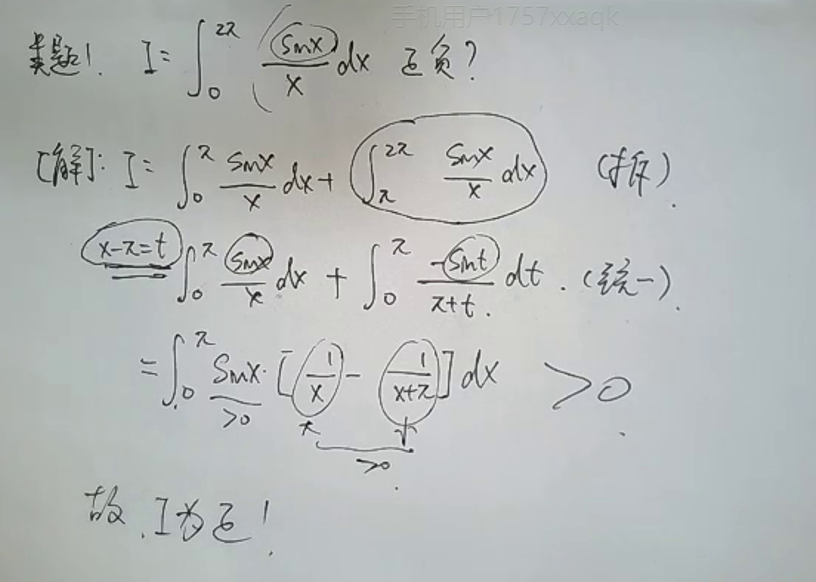 手机用户1757xxaqk
类题! I = ∫₀^{2π} sinx/x dx 正负?
[解]: I = ∫₀^π sinx/x dx + ∫_π^{2π} sinx/x dx (拆).
x-π=t ∫₀^π sinx/x dx + ∫₀^π -sint/(π+t) dt. (统一).
= ∫₀^π sinx · [1/x - 1/(x+π)] dx > 0.
>0 大 小
>0
故, I为正!